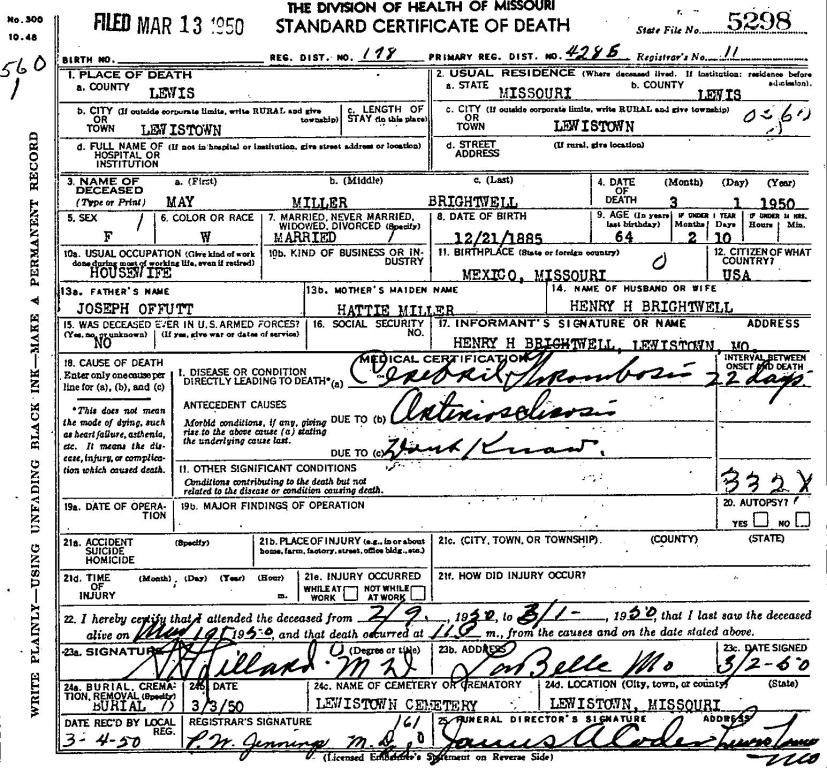 No. 300
10-48
THE DIVISION OF HEALTH OF MISSOURI
FILED MAR 13 1950 STANDARD CERTIFICATE OF DEATH State File No. 5298
BIRTH NO. REG. DIST. NO. 178 PRIMARY REG. DIST. NO. 4285 Registrar's No. 11
560
1
WRITE PLAINLY—USING UNFADING BLACK INK—MAKE A PERMANENT RECORD
1. PLACE OF DEATH
a. COUNTY LEWIS
2. USUAL RESIDENCE (Where deceased lived. If institution: residence before admission).
a. STATE MISSOURI b. COUNTY LEWIS
b. CITY (If outside corporate limits, write RURAL and give township) OR TOWN LEWISTOWN
c. LENGTH OF STAY (in this place)
c. CITY (If outside corporate limits, write RURAL and give township) OR TOWN LEWISTOWN
d. FULL NAME OF (If not in hospital or institution, give street address or location) HOSPITAL OR INSTITUTION
d. STREET ADDRESS (If rural, give location)
3. NAME OF DECEASED (Type or Print) a. (First) MAY b. (Middle) MILLER c. (Last) BRIGHTWELL
4. DATE OF DEATH (Month) (Day) (Year) 3 1 1950
5. SEX F
6. COLOR OR RACE W
7. MARRIED, NEVER MARRIED, WIDOWED, DIVORCED (Specify) MARRIED
8. DATE OF BIRTH 12/21/1885
9. AGE (In years last birthday) 64 IF UNDER 1 YEAR Months 2 Days 10 IF UNDER 24 HRS. Hours Min.
10a. USUAL OCCUPATION (Give kind of work done during most of working life, even if retired) HOUSEWIFE
10b. KIND OF BUSINESS OR INDUSTRY
11. BIRTHPLACE (State or foreign country) MEXICO, MISSOURI
12. CITIZEN OF WHAT COUNTRY? USA
13a. FATHER'S NAME JOSEPH OFFUTT
13b. MOTHER'S MAIDEN NAME HATTIE MILLER
14. NAME OF HUSBAND OR WIFE HENRY H BRIGHTWELL
15. WAS DECEASED EVER IN U.S. ARMED FORCES? (Yes, no, or unknown) (If yes, give war or dates of service) NO
16. SOCIAL SECURITY NO.
17. INFORMANT'S SIGNATURE OR NAME ADDRESS
HENRY H BRIGHTWELL, LEWISTOWN, MO.
18. CAUSE OF DEATH
Enter only one cause per line for (a), (b), and (c)
*This does not mean the mode of dying, such as heart failure, asthenia, etc. It means the disease, injury, or complication which caused death.
MEDICAL CERTIFICATION
INTERVAL BETWEEN ONSET AND DEATH
I. DISEASE OR CONDITION DIRECTLY LEADING TO DEATH* (a) Cerebril Thrombosis 22 days
ANTECEDENT CAUSES
Morbid conditions, if any, giving rise to the above cause (a) stating the underlying cause last.
DUE TO (b) Arteriosclerosis
DUE TO (c) Dont Know.
11. OTHER SIGNIFICANT CONDITIONS
Conditions contributing to the death but not related to the disease or condition causing death.
332X
19a. DATE OF OPERATION
19b. MAJOR FINDINGS OF OPERATION
20. AUTOPSY? YES NO
21a. ACCIDENT SUICIDE HOMICIDE (Specify)
21b. PLACE OF INJURY (e.g., in or about home, farm, factory, street, office bldg., etc.)
21c. (CITY, TOWN, OR TOWNSHIP) (COUNTY) (STATE)
21d. TIME OF INJURY (Month) (Day) (Year) (Hour) m.
21e. INJURY OCCURRED WHILE AT WORK NOT WHILE AT WORK
21f. HOW DID INJURY OCCUR?
22. I hereby certify that I attended the deceased from 2/9, 1950, to 3/1-, 1950, that I last saw the deceased
alive on 1950, and that death occurred at m., from the causes and on the date stated above.
23a. SIGNATURE (Degree or title) M D
23b. ADDRESS LaBelle Mo
23c. DATE SIGNED 3/2-50
24a. BURIAL, CREMATION, REMOVAL (Specify) BURIAL
24b. DATE 3/3/50
24c. NAME OF CEMETERY OR CREMATORY LEWISTOWN CEMETERY
24d. LOCATION (City, town, or county) (State) LEWISTOWN, MISSOURI
DATE REC'D BY LOCAL REG. 3-4-50
REGISTRAR'S SIGNATURE P.W. Jennings M.D. 161
25. FUNERAL DIRECTOR'S SIGNATURE ADDRESS
James A Coder Lewistown Mo
(Licensed Embalmer's Statement on Reverse Side)